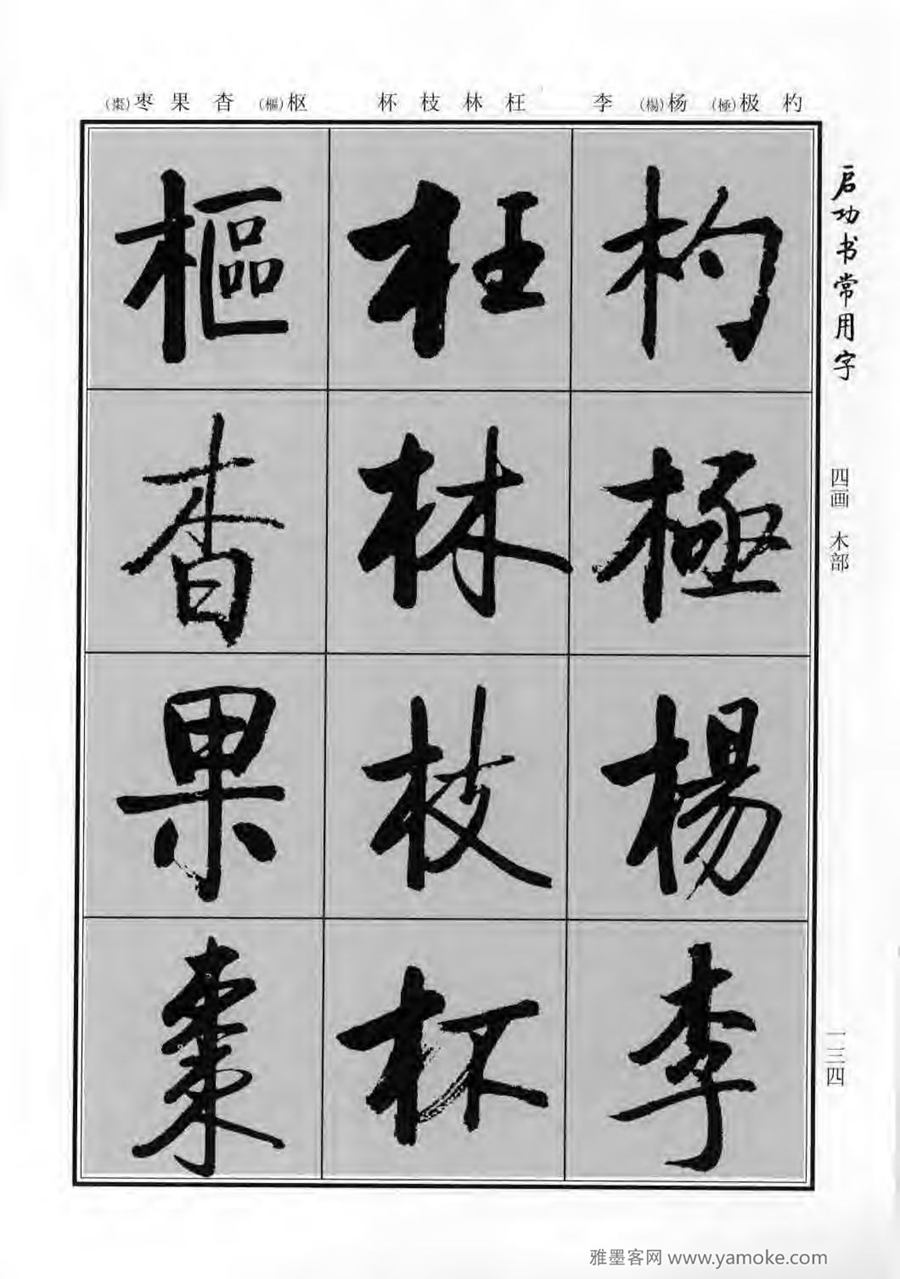 杓 极(極) 杨(楊) 李 枉 林 枝 杯 枢(樞) 杳 果 枣(棗)
启功书常用字
四画 木部
一三四
杓極楊李
枉林枝杯
樞杳果棗
雅墨客网 www.yamoke.com